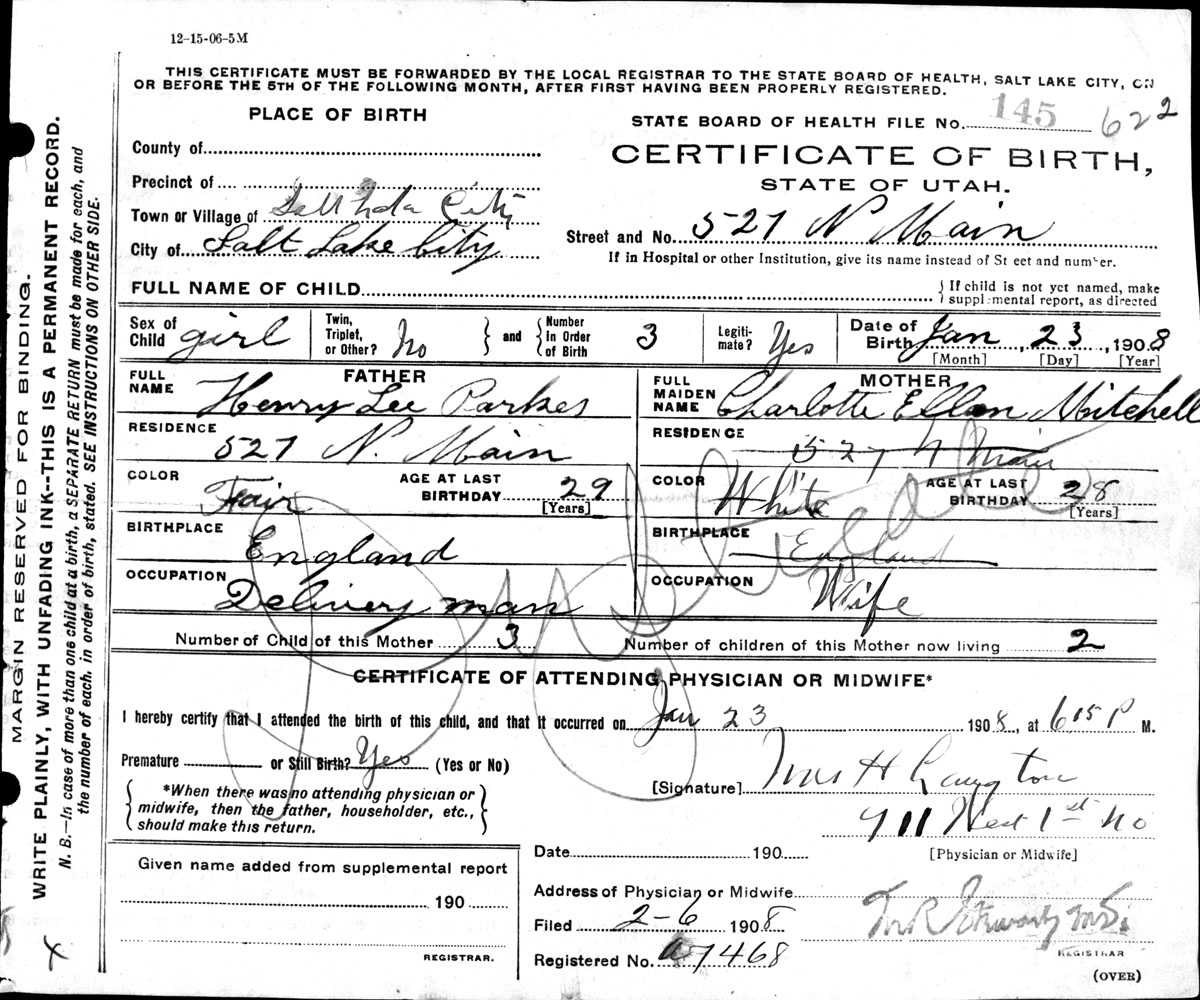 12-15-06-5M
THIS CERTIFICATE MUST BE FORWARDED BY THE LOCAL REGISTRAR TO THE STATE BOARD OF HEALTH, SALT LAKE CITY, ON
OR BEFORE THE 5TH OF THE FOLLOWING MONTH, AFTER FIRST HAVING BEEN PROPERLY REGISTERED.
PLACE OF BIRTH
STATE BOARD OF HEALTH FILE No. 145 622
County of
CERTIFICATE OF BIRTH,
Precinct of
STATE OF UTAH.
Town or Village of City
City of Salt Lake City
Street and No. 527 N Main
If in Hospital or other Institution, give its name instead of Street and number.
FULL NAME OF CHILD
If child is not yet named, make
supplemental report, as directed
Sex of Child girl
Twin, Triplet, or Other? No
and
Number In Order of Birth 3
Legiti-mate? Yes
Date of Birth Jan 23, 1908
[Month] [Day] [Year]
FATHER
FULL NAME Henry Lee Parkes
RESIDENCE 527 N. Main
COLOR Fair
AGE AT LAST BIRTHDAY 29
[Years]
BIRTHPLACE England
OCCUPATION Delivery man
MOTHER
FULL MAIDEN NAME Charlotte Ellen Mitchell
RESIDENCE 527 N Main
COLOR White
AGE AT LAST BIRTHDAY 28
[Years]
BIRTHPLACE England
OCCUPATION Wife
Number of Child of this Mother 3
Number of children of this Mother now living 2
CERTIFICATE OF ATTENDING PHYSICIAN OR MIDWIFE*
I hereby certify that I attended the birth of this child, and that it occurred on Jan 23 1908, at 6 15 P M.
Premature or Still Birth? Yes (Yes or No)
*When there was no attending physician or
midwife, then the father, householder, etc.,
should make this return.
[Signature] Mrs H Langton
711 West 1st No
[Physician or Midwife]
Given name added from supplemental report
190
REGISTRAR.
Date 190
Address of Physician or Midwife
Filed 2-6 1908
Registered No. a7468
REGISTRAR
(OVER)
MARGIN RESERVED FOR BINDING.
WRITE PLAINLY, WITH UNFADING INK--THIS IS A PERMANENT RECORD.
N. B.—In case of more than one child at a birth, a SEPARATE RETURN must be made for each, and
the number of each, in order of birth, stated. SEE INSTRUCTIONS ON OTHER SIDE.
Stillborn